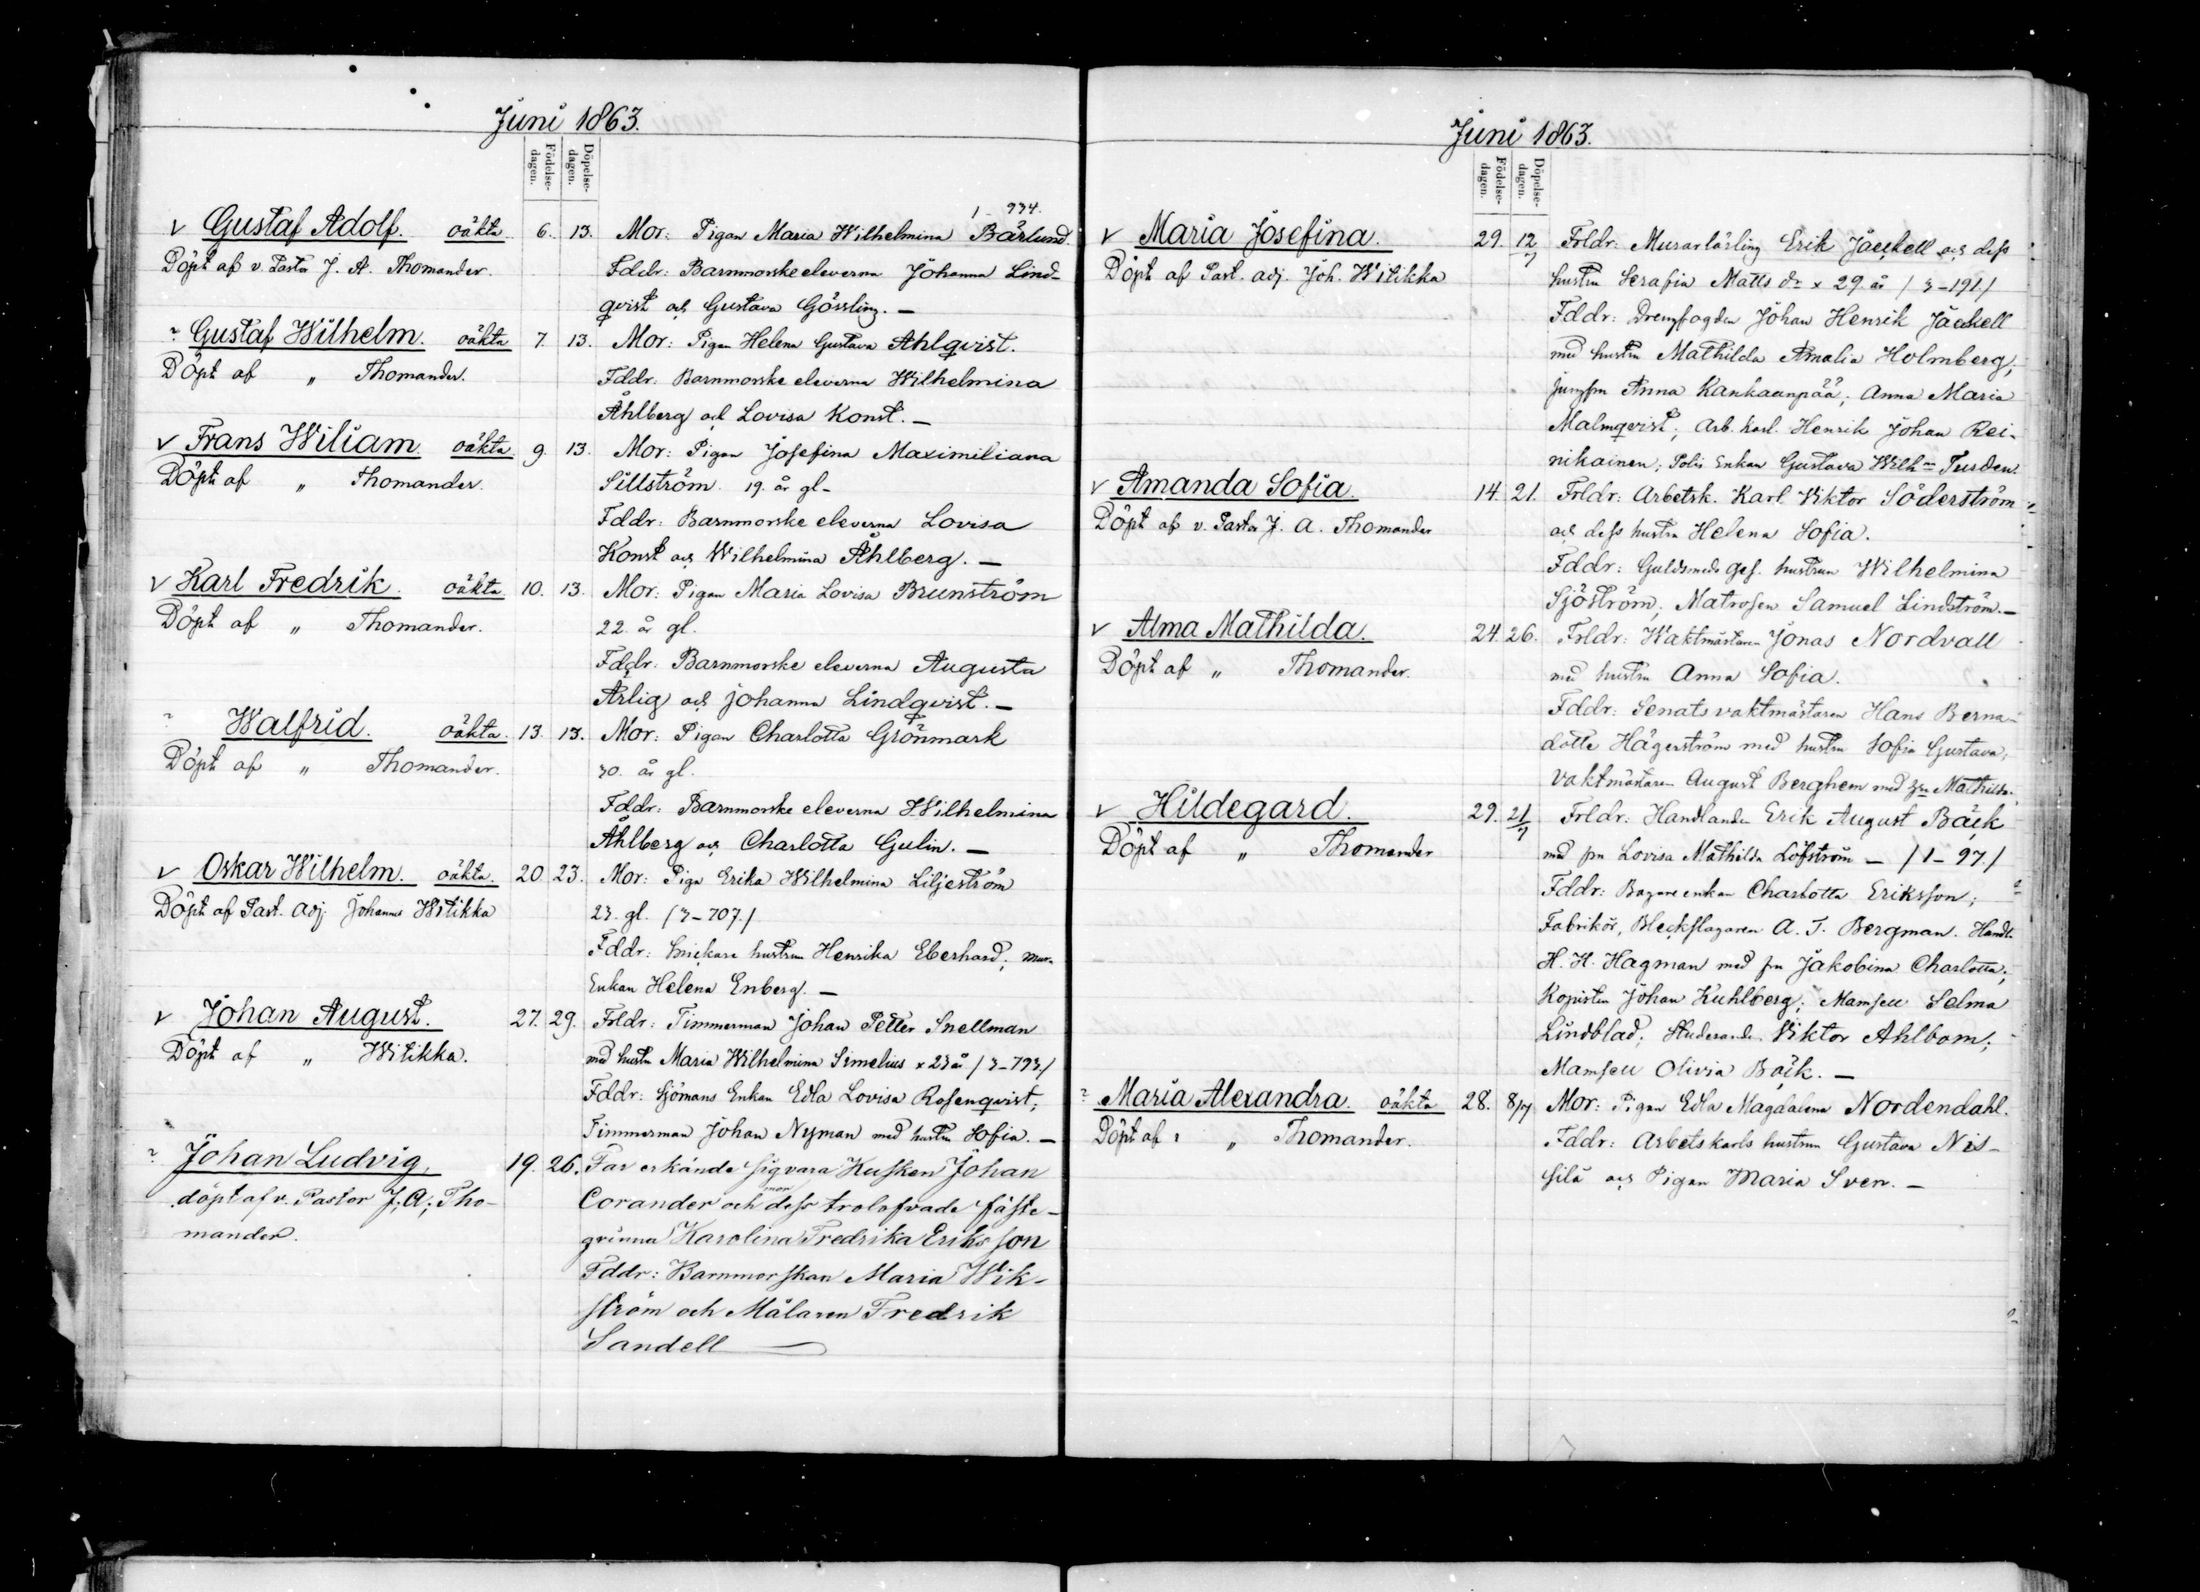 Juni 1863.
Födelse-dagen.
Döpelse-dagen.
1 - 934.
v Gustaf Adolf. oäkta. 6. 13. Mor: Pigan Maria Wilhelmina Bärlund
Döpt af v. Pastor J. A. Thomander. Fddr: Barnmorske eleverna Johanna Lind-
qvist och Gustava Gössling. —
Gustaf Wilhelm. oäkta 7. 13. Mor: Pigan Helena Gustava Ahlqvist.
Döpt af " Thomander. Fddr: Barnmorske eleverna Wilhelmina
Åhlberg och Lovisa Konst. —
v Frans Wiliam. oäkta. 9. 13. Mor: Pigan Josefina Maximiliana
Döpt af " Thomander. Sillström. 19. år gl-
Fddr: Barnmorske eleverna Lovisa
Konst och Wilhelmina Åhlberg. —
v Karl Fredrik. oäkta. 10. 13. Mor: Pigan Maria Lovisa Brunström
Döpt af " Thomander. 22. år gl.
Fddr: Barnmorske eleverna Augusta
Arlig och Johanna Lindqvist. —
Walfrid. oäkta. 13. 13. Mor: Pigan Charlotta Grönmark
Döpt af " Thomander. 30. år gl.
Fddr: Barnmorske eleverna Wilhelmina
Åhlberg och Charlotta Gulin. —
v Oskar Wilhelm. oäkta. 20 23. Mor: Piga Erika Wilhelmina Liljeström
Döpt af Past. adj Johannes Witikka 23. gl. /3-707./
Fddr: Snickare hustrun Henrika Eberhard;
Enkan Helena Enberg. —
v Johan August. 27. 29. Frldr: Timmerman Johan Petter Snellman
Döpt af " Witikka. med hustru Maria Wilhelmina Simelius x 23 år /3-793./
Fddr: Sjömans Enkan Edla Lovisa Rosenqvist;
Timmerman Johan Nyman med hustru Sofia. —
Johan Ludvig. 19. 26. Far erkände sig vara Kusken Johan
döpt af v. Pastor J. A. Tho- Corander och mor dess trolofvade fäste-
mander. qvinna Karolina Fredrika Eriksson
Fddr: Barnmorskan Maria Wik-
ström och Målaren Fredrik
Sandell —
Juni 1863.
Födelse-dagen.
Döpelse-dagen.
v Maria Josefina. 29. 12/7 Frldr: Murarlärling Erik Jäckell och dess
Döpt af Past. adj. Joh. Witikka hustru Serafia Matts dr x 29 år /3-191./
Fddr: Drengfogden Johan Henrik Jäckell
med hustru Mathilda Amalia Holmberg;
jungfru Anna Kankaanpää; Anna Maria
Malmqvist; Arb. karl. Henrik Johan Rei-
nikainen; Polis Enkan Gustava Wilhna Turden
v Amanda Sofia. 14. 21. Frldr: Arbetsk. Karl Viktor Söderström
Döpt af v. Pastor J. A. Thomander och dess hustru Helena Sofia.
Fddr: Guldsmeds ges. hustrun Wilhelmina
Sjöström; Matrosen Samuel Lindström. —
v Alma Mathilda. 24. 26. Frldr: Waktmästaren Jonas Nordvall
Döpt af " Thomander. med hustru Anna Sofia.
Fddr: Senats vaktmästaren Hans Berna-
dotte Hägerström med hustru Sofia Gustava;
Vaktmästaren August Berghem med Mathilda.
v Hildegard. 29. 21/7 Frldr: Handlande Erik August Bäck
Döpt af " Thomander med fru Lovisa Mathilda Löfström — /1-97./
Fddr: Bagare enkan Charlotta Eriksson;
Fabrikör, Bleckslagaren A. T. Bergman. Handl.
H. H. Hagman med fru Jakobina Charlotta;
Kopisten Johan Kuhlberg; Mamsell Selma
Lindblad; Studerande Viktor Ahlbom;
Mamsell Olivia Bäck. —
Maria Alexandra. oäkta 28. 8/7 Mor: Pigan Edla Magdalena Nordendahl.
Döpt af " Thomander. Fddr: Arbetskarls hustrun Gustava Nis-
silä och Pigan Maria Sven. —